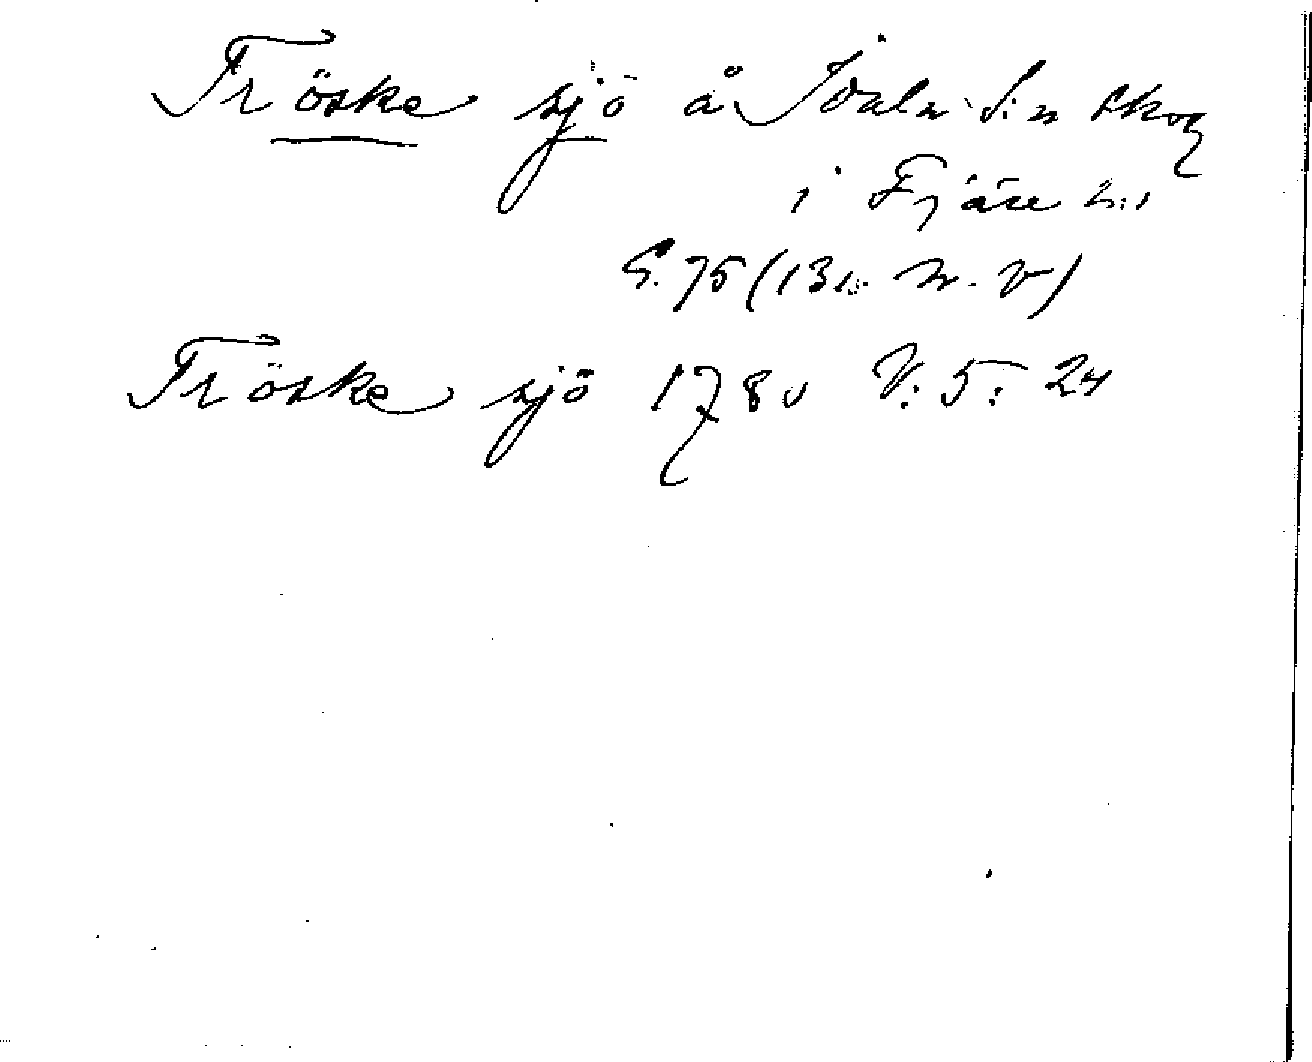 Tröske sjö å Idala S:n skog
i Fjäre h:d
G. 75 (131. N. V)
Tröske sjö 1780 V: 5: 24